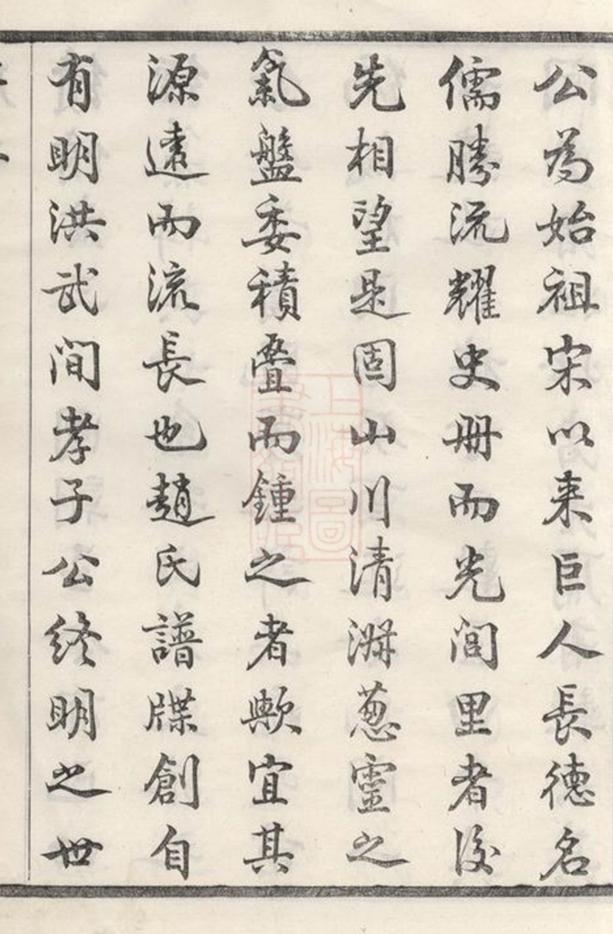 公為始祖宋以来巨人長德名
儒勝流耀史冊而光閭里者後
先相望是固山川清淑葱靈之
氣盤委積疊而鍾之者歟宜其
源遠而流長也趙氏譜牒創自
有明洪武間孝子公終明之世
上海圖